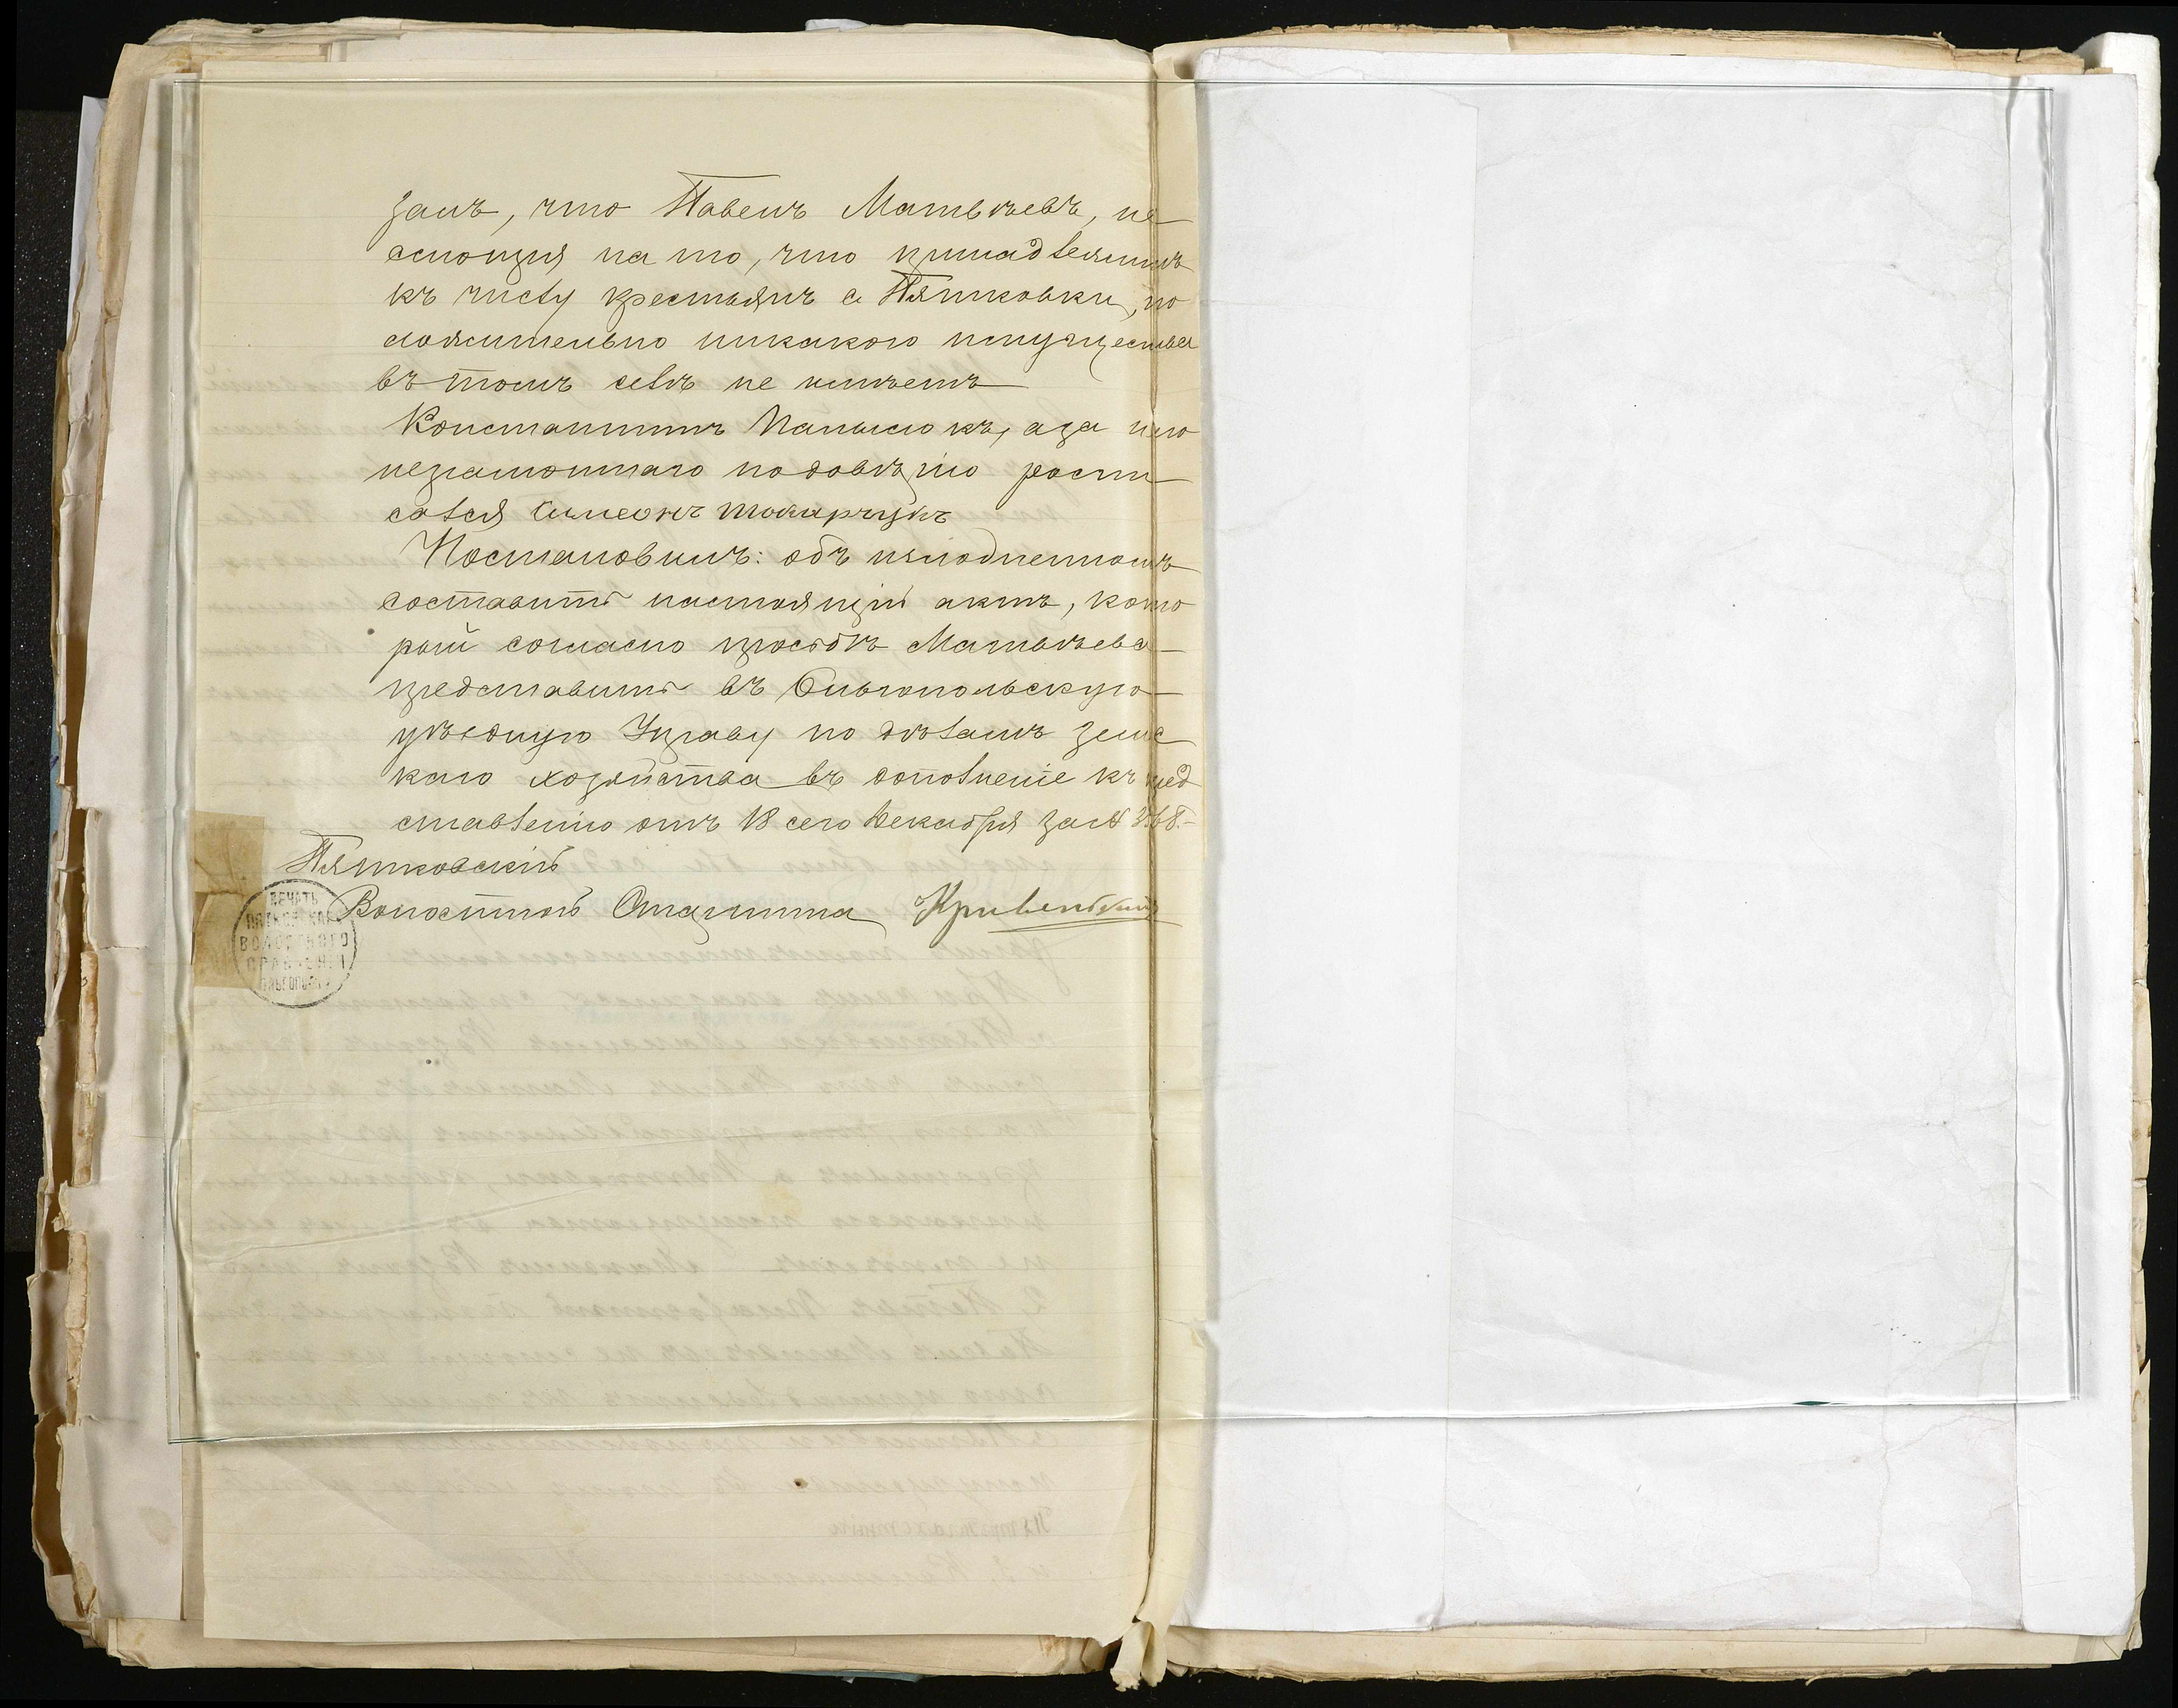 залъ, что Павелъ Матвѣевъ, не
смотря на то, что принадлежитъ
къ числу крестьянъ с Пятковки, по
ложительно никакого имущества
въ томъ селѣ не имѣетъ
Константинъ а за него
неграмотнаго по довѣрію роспи
сался Симеонъ Токарчукъ
Постановилъ: объ изложенномъ
составить настоящій актъ, кото
рый согласно просьбѣ Матвѣева
представить въ Ольгопольскую
уѣздную Управу по дѣламъ земс
каго хозяйства въ дополненіе къ пред
ставленію отъ 18 сего Декабря за №
Пятковскій
Волостной Старшина
ПЕЧАТЬ
ВОЛОСТНОГО